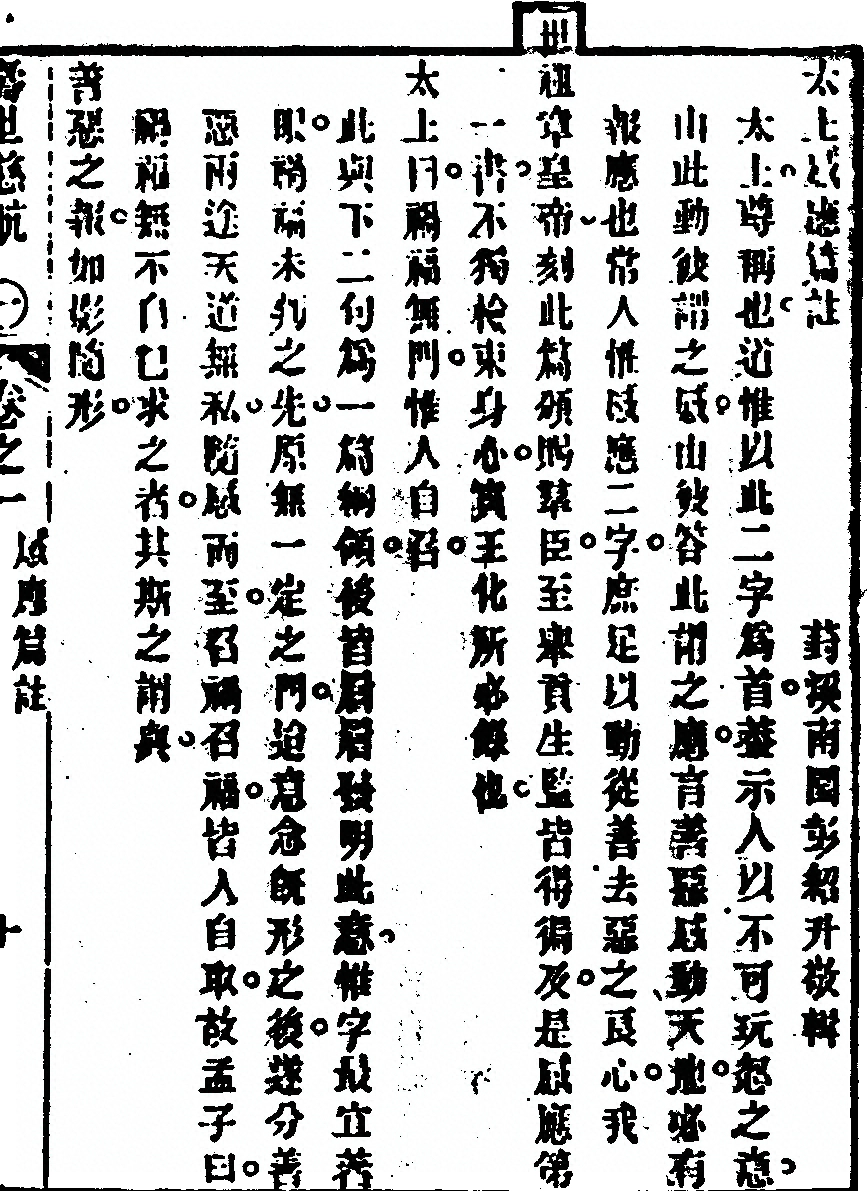 太上感應篇註　　葑溪南園彭紹升敬輯
太上尊稱也道惟以此二字爲首葢示人以不可玩忽之意
由此動彼謂之感由彼答此謂之應言善惡感動天地必有
報應也常人惟感應二字庶足以動從善去惡之良心我
世祖章皇帝刻此篇頒賜羣臣至舉貢生監皆得徧及是感應第
一書不獨檢束身心實王化所必錄也
太上曰禍福無門惟人自召
此與下二句爲一篇綱領後皆層層發明此意惟字最宜著
眼禍福未到之先原無一定之門迨意念旣形之後遂分善
惡兩途天道無私隨感而至召禍召福皆人自取故孟子曰
禍福無不自己求之者其斯之謂與
善惡之報如影隨形
世慈航　卷之一　感應篇註　十